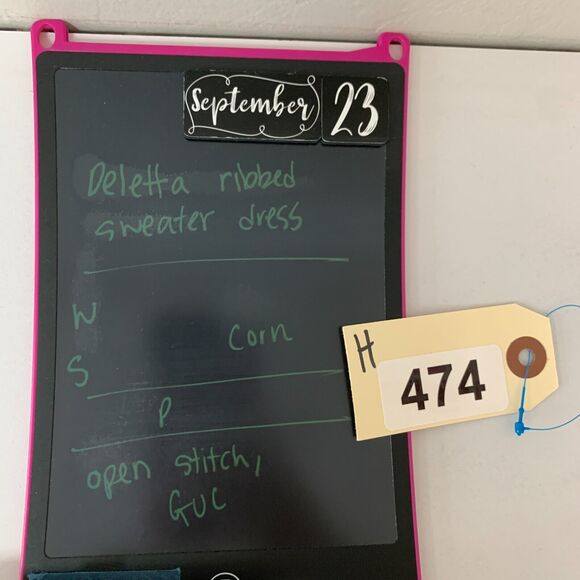 September 23
Deletta ribbed
sweater dress
W
Corn
S
P
open stitch,
GUC
H
474